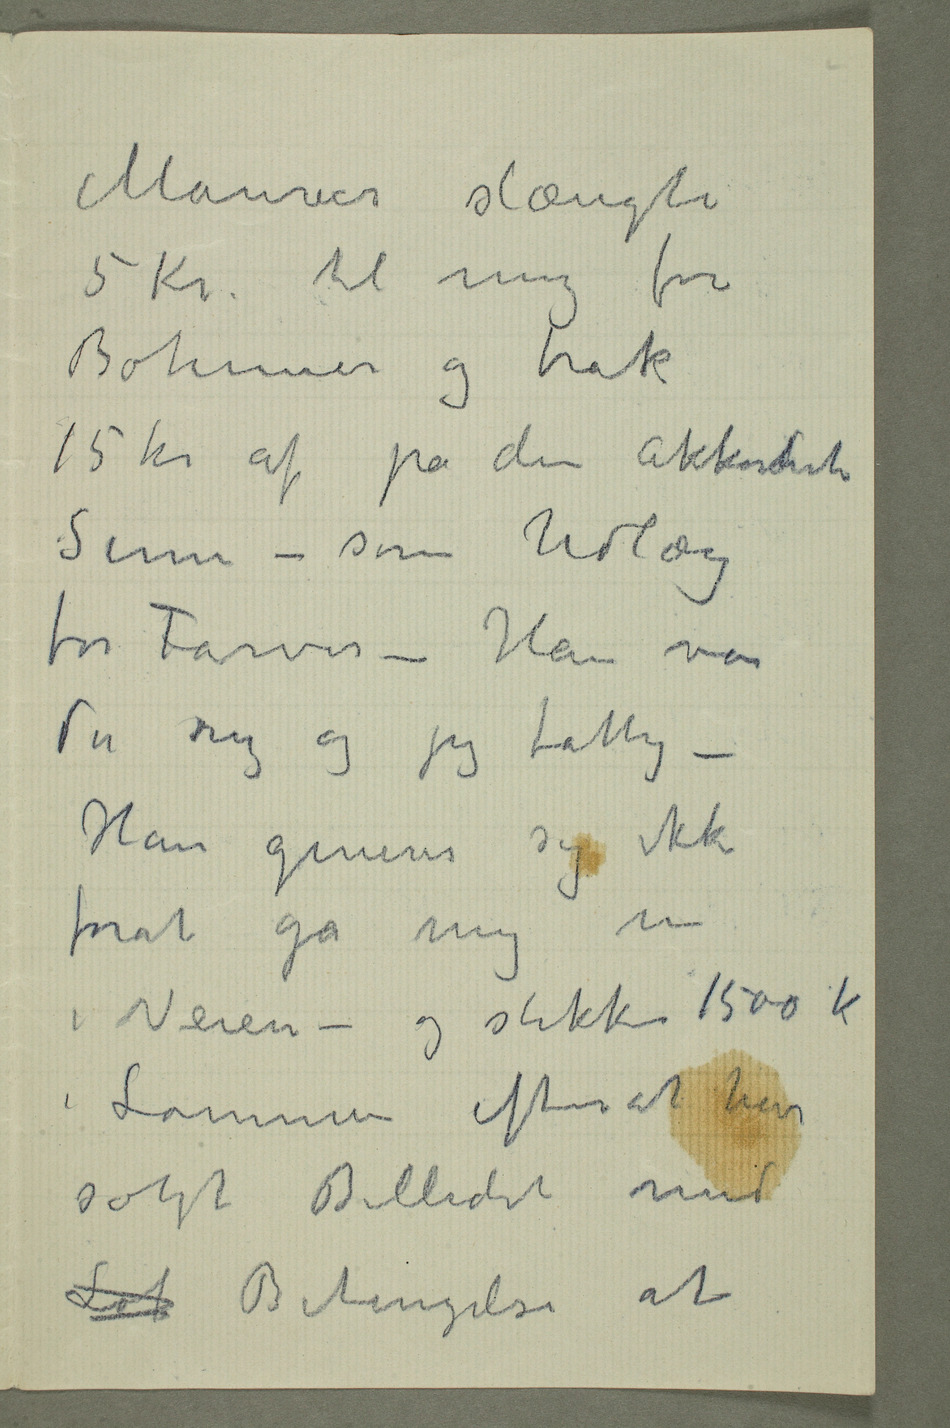 Maurer slængte
5 Kr. til mig for
Bohemer og trak
15 kr af på den akkorderte
Sum – som Udlæg
for Farver – Han var
du rig og jeg fattig –
Han generer sig ikke
forat gå mig en
i Veien – og stikke 1500 k
i Lommen efterat have
solgt Billedet med
Betingelse at